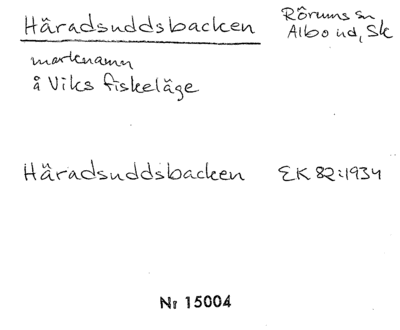 Häradsuddsbacken Rörums sn
Albo hd, Sk
marknamn
å Viks fiskeläge
Häradsuddsbacken EK 82:1934
Nr 15004